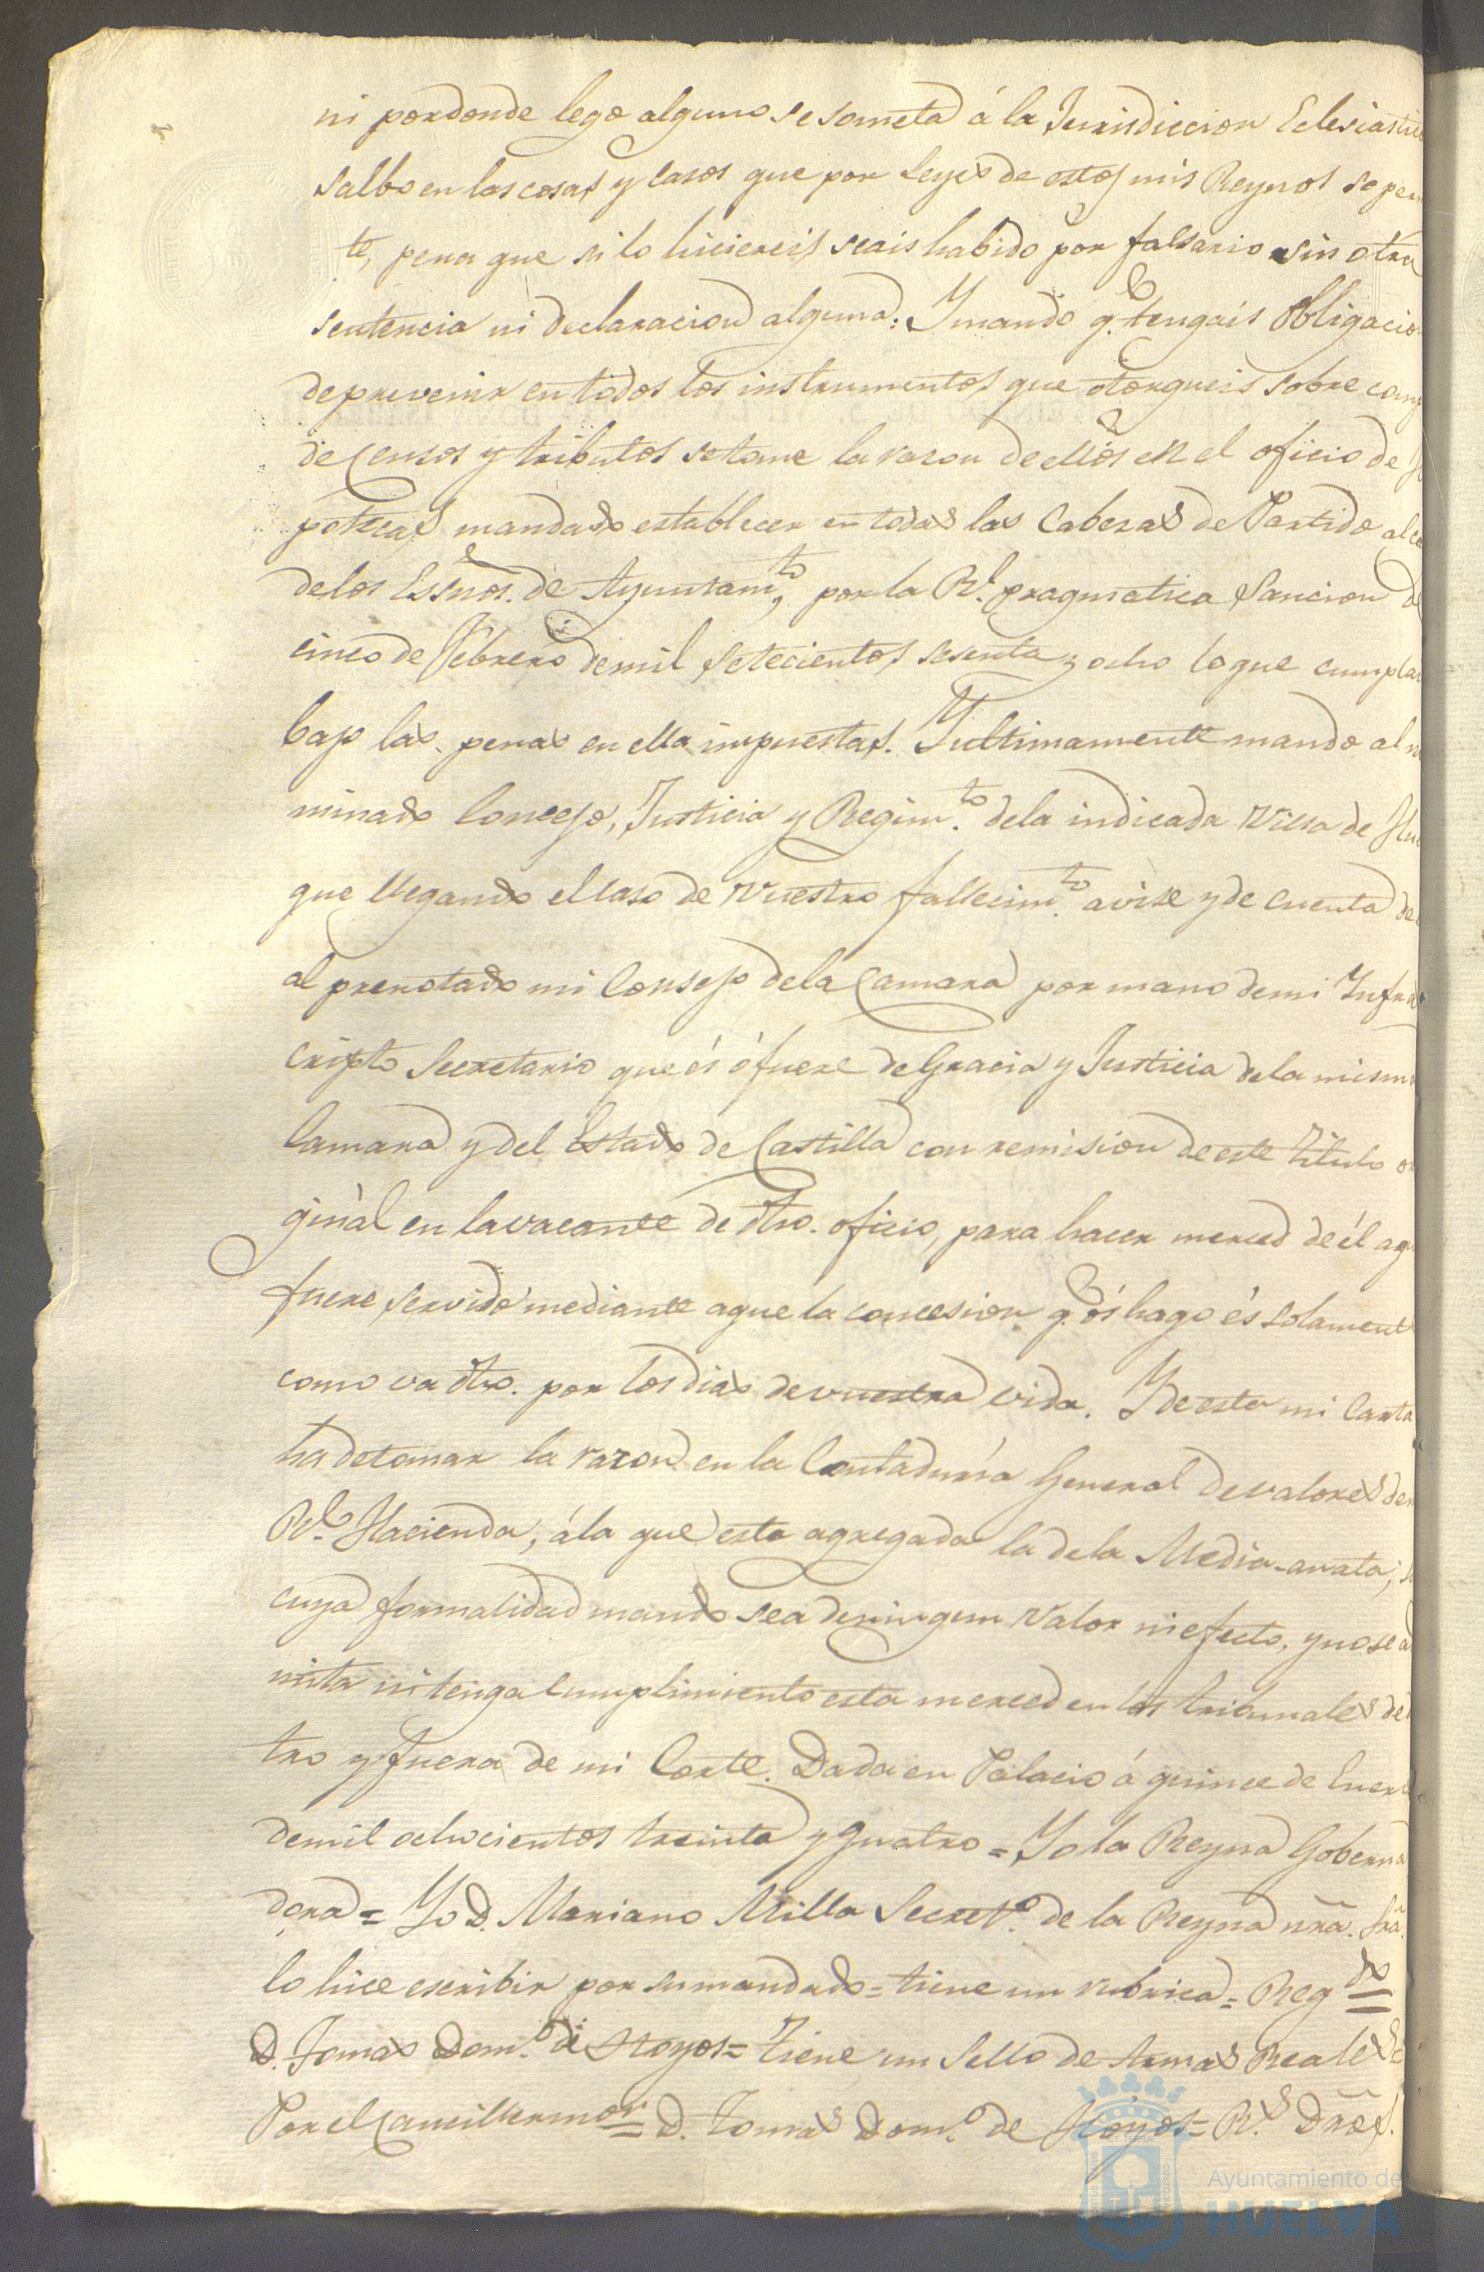 ni por donde lego alguno se someta á la Jurisdiccion Eclesiastic
salbo en las cosas y casos que por Leyes de estos mis Reynos se per
te, pena que si lo hiciereis seais habido por falsario sin otra
sentencia ni declaracion alguna: Y mando q.e tengais obligacion
de prevenir en todos los instrumentos que otorgueis sobre comp
de Censos y tributos se tome la razon de ellos en el oficio de H
potecas mandado establecer en todas las Cabezas de Partido al ca
de los Essnos. de Ayuntam.to, por la R.l pragmatica Sancion de
cinco de Febrero de mil setecientos sesenta y ocho lo que cumplai
bajo las penas en ella impuestas. Y ultimamente mando al no
minado Concejo, Justicia y Regim.to de la indicada Villa de Hue
que llegando el caso de vuestro fallecim.to avise y de cuenta de
al prenotado mi Consejo de la Camara por mano de mi Infra
cripto Secretario que és ó fuere de Gracia y Justicia de la misma
Camara y del Estado de Castilla con remision de este titulo or
ginàl en la vacante de dho. oficio, para hacer merced de él a qu
fuere servido mediante a que la concesion q.e ós hago és solament
como va dho. por los dias de vuestra vida. Y de esta mi Carta
ha de tomar la razon en la Contaduría General de valores de m
R.l Hacienda, á la que está agregada la de la Media-anata, s
cuya formalidad mando sea de ningun valor ni efecto, y no se ad
mita ni tenga cumplimiento esta merced en los tribunales de
tro y fuera de mi Corte. Dada en Palacio á quince de Enero
de mil ochocientos treinta y quatro = Yo la Reyna Goberna
dora = Yo D. Mariano Milla Secret.o de la Reyna nrã. Srã.
lo hice escribir por su mandado = tiene un rubrica = Reg.do =
D. Tomas Dom.o de Hoyos = Tiene un Sello de Armas Reales =
Por el Canciller mor = D. Tomas Dom.o de Hoyos = R.s Drõs.
Ayuntamiento de
HUELVA